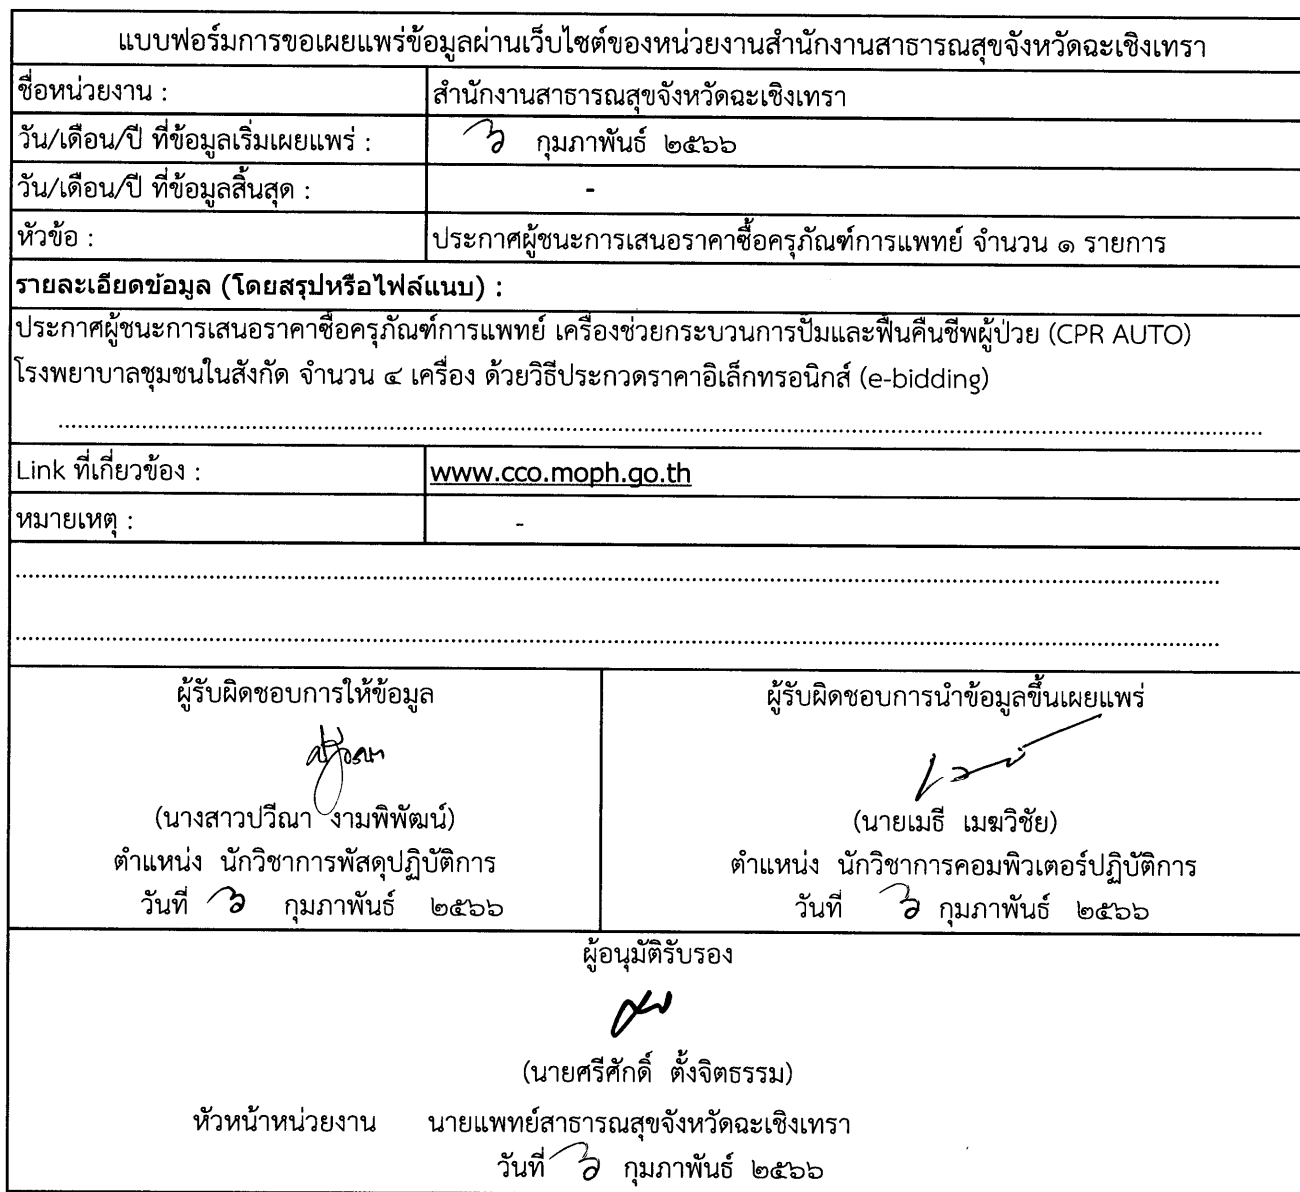 แบบฟอร์มการขอเผยแพร่ข้อมูลผ่านเว็บไซต์ของหน่วยงานสำนักงานสาธารณสุขจังหวัดฉะเชิงเทรา
ชื่อหน่วยงาน : สำนักงานสาธารณสุขจังหวัดฉะเชิงเทรา
วัน/เดือน/ปี ที่ข้อมูลเริ่มเผยแพร่ : ๖ กุมภาพันธ์ ๒๕๖๖
วัน/เดือน/ปี ที่ข้อมูลสิ้นสุด : -
หัวข้อ : ประกาศผู้ชนะการเสนอราคาซื้อครุภัณฑ์การแพทย์ จำนวน ๑ รายการ
รายละเอียดข้อมูล (โดยสรุปหรือไฟล์แนบ) :
ประกาศผู้ชนะการเสนอราคาซื้อครุภัณฑ์การแพทย์ เครื่องช่วยกระบวนการปั๊มและฟื้นคืนชีพผู้ป่วย (CPR AUTO)
โรงพยาบาลชุมชนในสังกัด จำนวน ๔ เครื่อง ด้วยวิธีประกวดราคาอิเล็กทรอนิกส์ (e-bidding)
Link ที่เกี่ยวข้อง : www.cco.moph.go.th
หมายเหตุ : -
ผู้รับผิดชอบการให้ข้อมูล
(นางสาวปวีณา งามพิพัฒน์)
ตำแหน่ง นักวิชาการพัสดุปฏิบัติการ
วันที่ ๖ กุมภาพันธ์ ๒๕๖๖
ผู้รับผิดชอบการนำข้อมูลขึ้นเผยแพร่
(นายเมธี เมฆวิชัย)
ตำแหน่ง นักวิชาการคอมพิวเตอร์ปฏิบัติการ
วันที่ ๖ กุมภาพันธ์ ๒๕๖๖
ผู้อนุมัติรับรอง
(นายศรีศักดิ์ ตั้งจิตธรรม)
หัวหน้าหน่วยงาน นายแพทย์สาธารณสุขจังหวัดฉะเชิงเทรา
วันที่ ๖ กุมภาพันธ์ ๒๕๖๖